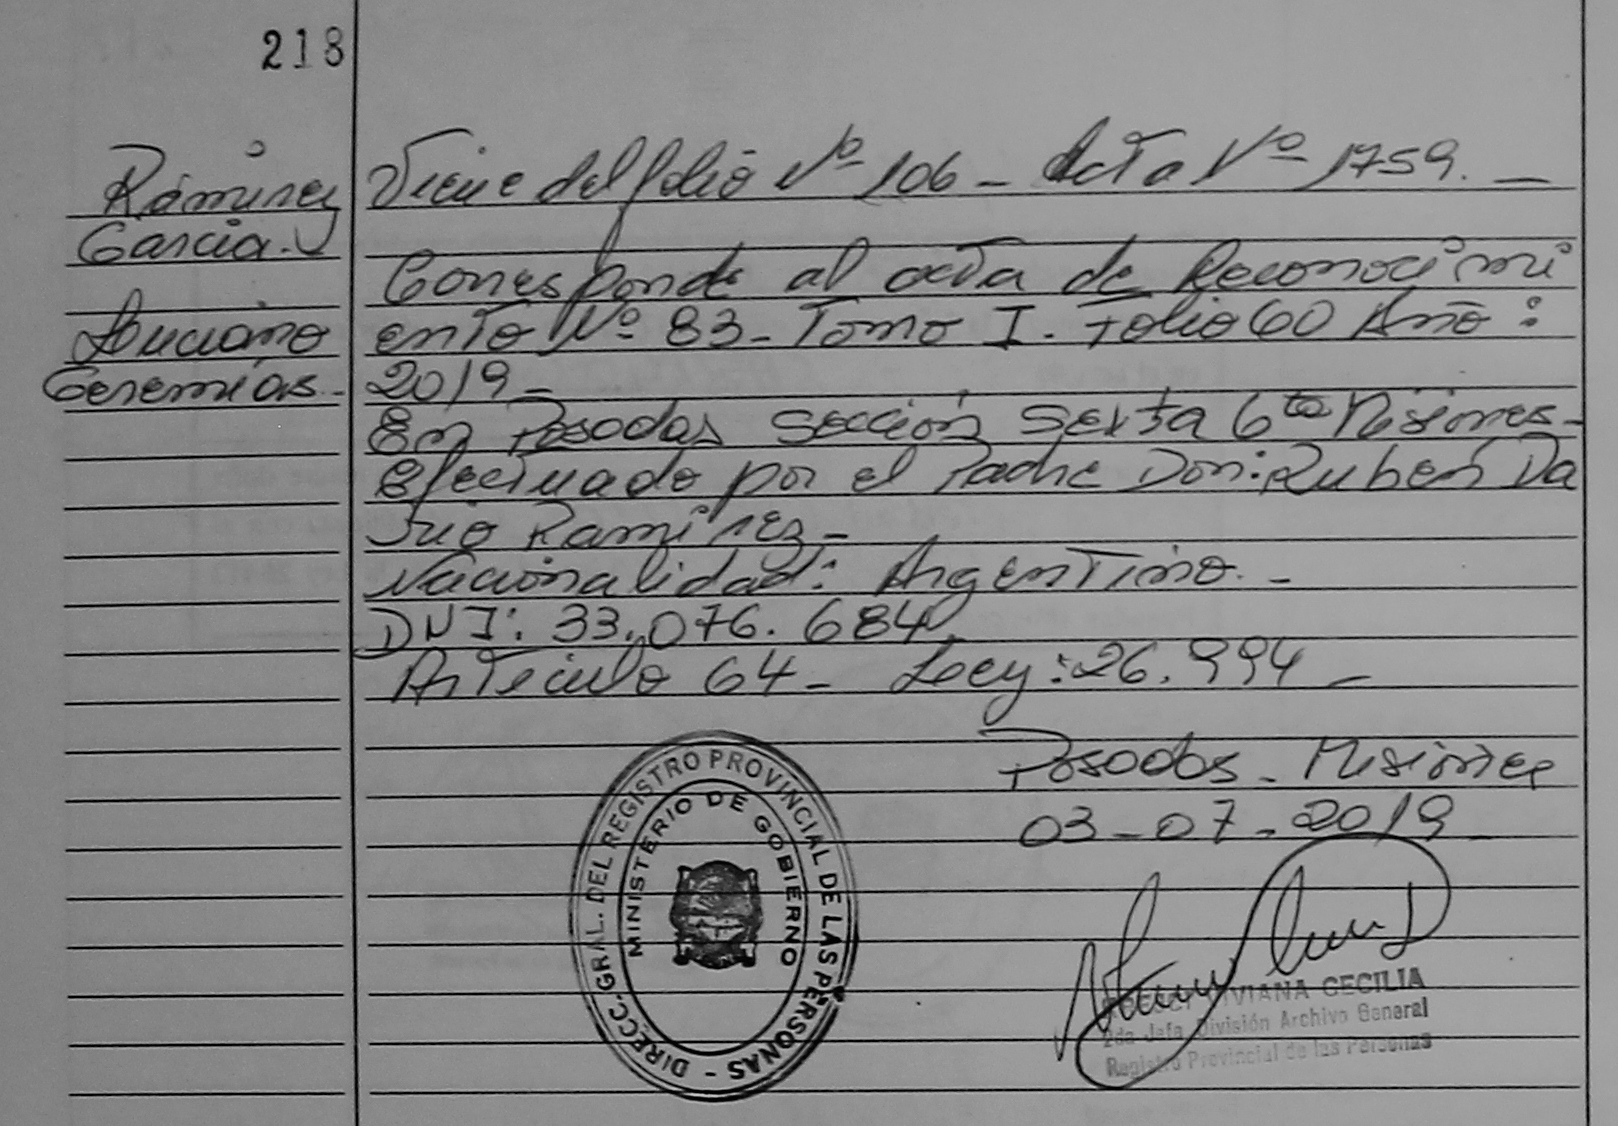 218
Ramirez
Garcia.
Luciano
Geremias.
Viene del folio Nº 106 - Acta Nº 1759. -
Corresponde al acta de Reconocimi
ento Nº 83 - Tomo I. Folio 60 Año:
2019 -
En Posadas Sección Sexta 6ta Misiones -
Efectuado por el Padre Don: Rubén Da
rio Ramirez -
Nacionalidad: Argentino. -
DNI: 33.076.684
Articulo 64 - Ley: 26.994 -
Posadas - Misiones
03-07-2019 -
DIRECC. GRAL. DEL REGISTRO PROVINCIAL DE LAS PERSONAS -
MINISTERIO DE GOBIERNO
VIVIANA CECILIA
2da Jefa División Archivo General
Registro Provincial de las Personas